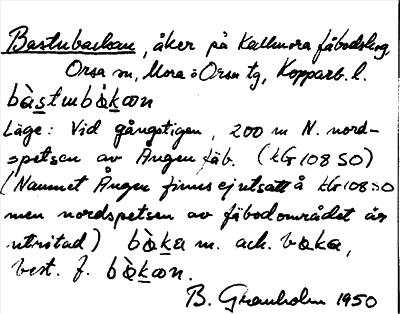 Bastubackan, åker på Kallmora fäbodskog,
Orsa sn, Mora o Orsa tg, Kopparb. l.
bàstubàkan
Läge: Vid gångstigen, 200 m N. nord-
spetsen av Ången fäb. (kG 108 SO)
(Namnet Ången finns ej utsatt å kG 108 SO
men nordspetsen av fäbodområdet är
utritad) bàka m. ack. baka,
best. f. bàkan.
B. Granholm 1950